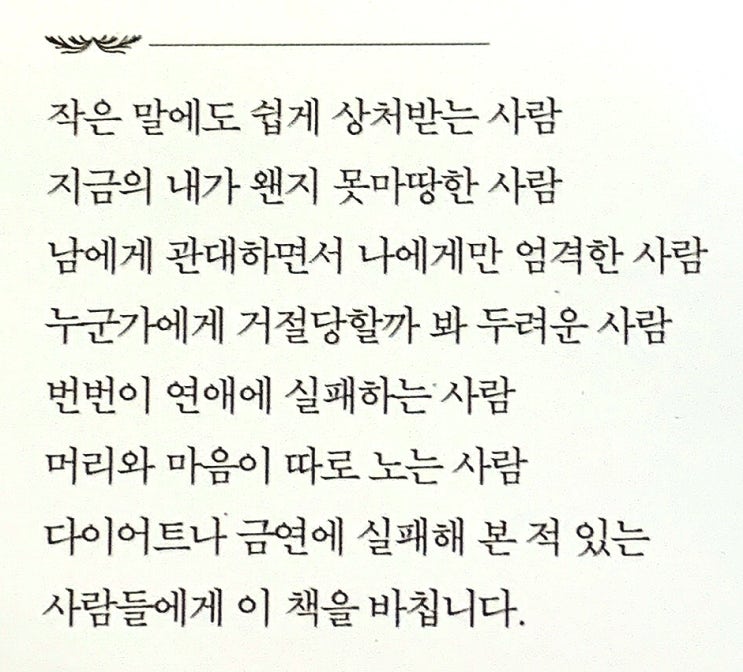 작은 말에도 쉽게 상처받는 사람
지금의 내가 왠지 못마땅한 사람
남에게 관대하면서 나에게만 엄격한 사람
누군가에게 거절당할까 봐 두려운 사람
번번이 연애에 실패하는 사람
머리와 마음이 따로 노는 사람
다이어트나 금연에 실패해 본 적 있는
사람들에게 이 책을 바칩니다.